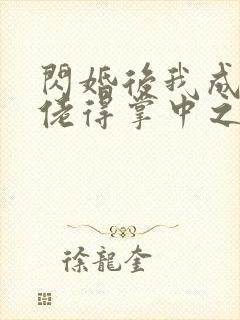 閃婚後我成
佬得掌中之
徐龍奎